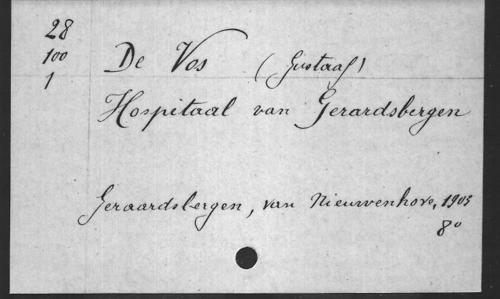 28
100
1
De Vos (Gustaaf)
Hospitaal van Gerardsbergen
Geraardsbergen, van Nieuwenhove, 1903
8°